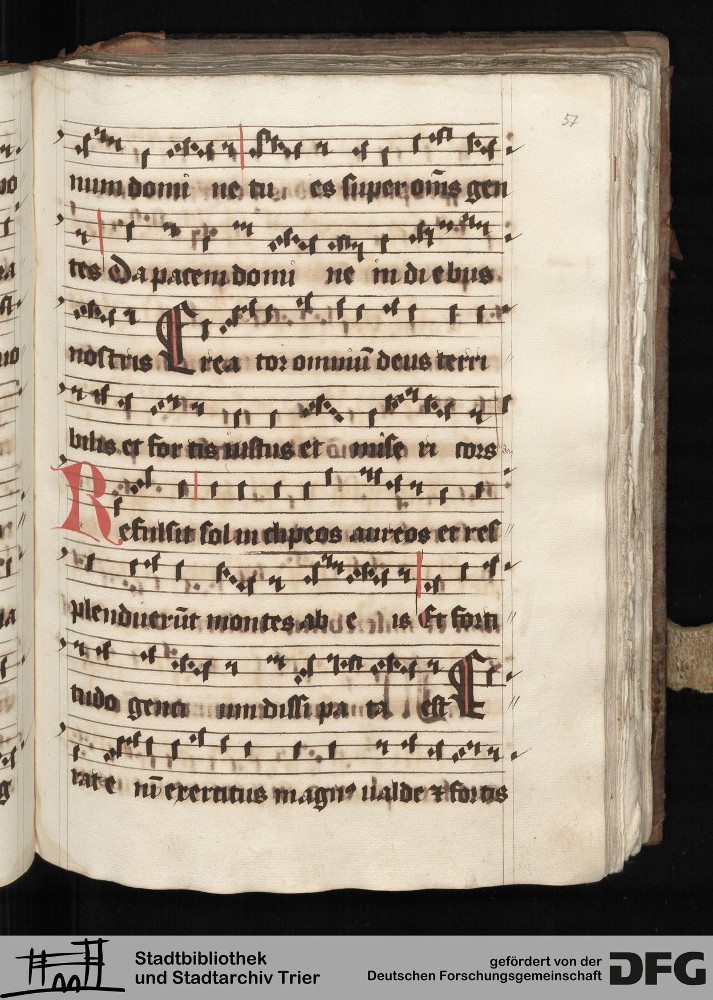 57
num domi ne tu es super om̅s gen
tes Da pacem domi ne in diebus
nostris Crea tor omniu̅ deus terri
bilis et for tis iustus et mise ri cors
Refulsit sol in clipeos aureos et res
plenduerūt montes ab e is Et forti
tudo genci um dissi pa ta est E
rat e ni̅ exercitus magnꝰ ualde ⁊ fortis
Stadtbibliothek
und Stadtarchiv Trier
gefördert von der
Deutschen Forschungsgemeinschaft
DFG